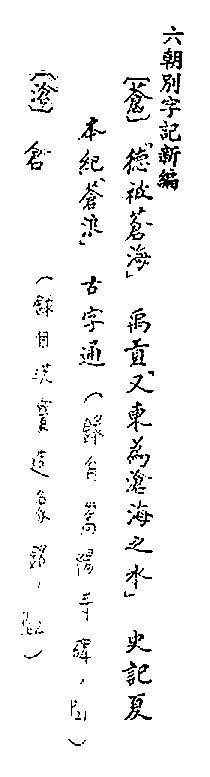 六朝別字記新編
〔蒼〕「德被蒼海」 禹貢「又東為滄海之水」 史記夏
本紀「蒼浪」 古字通（錄自嵩陽寺碑，P21）
〔滄〕 倉 （錄自洪寶造象銘，P62）